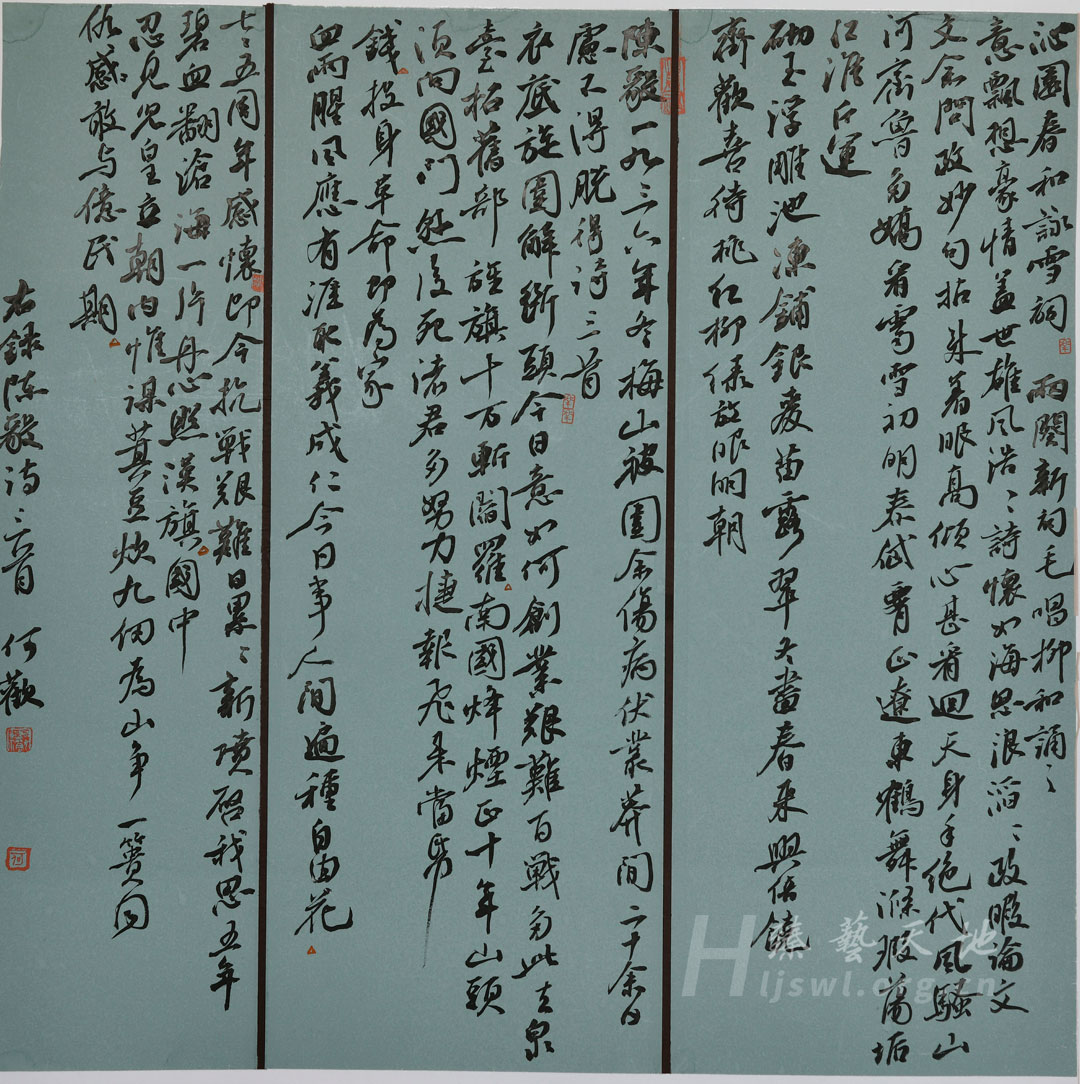 沁園春和詠雪詞 兩闋新詞毛唱柳和誦〻
意飄想豪情蓋世雄風浩〻詩懷如海思浪滔〻政暇論文
文余問政妙句拈来着眼高傾心甚看迴天身手絶代風騷山
河齊魯多嬌看霽雪初明泰岱腰正遼東鶴舞滌瑕蕩垢
江淮斤運
砌玉浮雕池凍鋪銀麦苗露翠冬盡春来興倍饒
齊歡喜待桃红柳绿放眼明朝
陳毅一九三六年冬梅山被圍余傷病伏叢莽間二十余日
慮不得脱得诗三首
衣底旋圍解斷頭今日意如何創業艱難百戰多此去泉
臺招舊部旌旗十万斬閻羅南國烽煙正十年此頭
須向國門懸後死诸君多努力捷報飛来當紙
錢投身革命即為家
血雨腥風應有涯取義成仁今日事人间遍種自由花
七〻五周年感懷即今抗戰艱難日累〻新墳啓我思五年
碧血翻滄海一片丹心照漢旗國中
忍见兒皇立朝内惟謀萁豆炊九仞為山争一簣同
仇感敢与億民期
右録陈毅诗〻六首 何歡
臻藝天池
Hljswl.org.cn